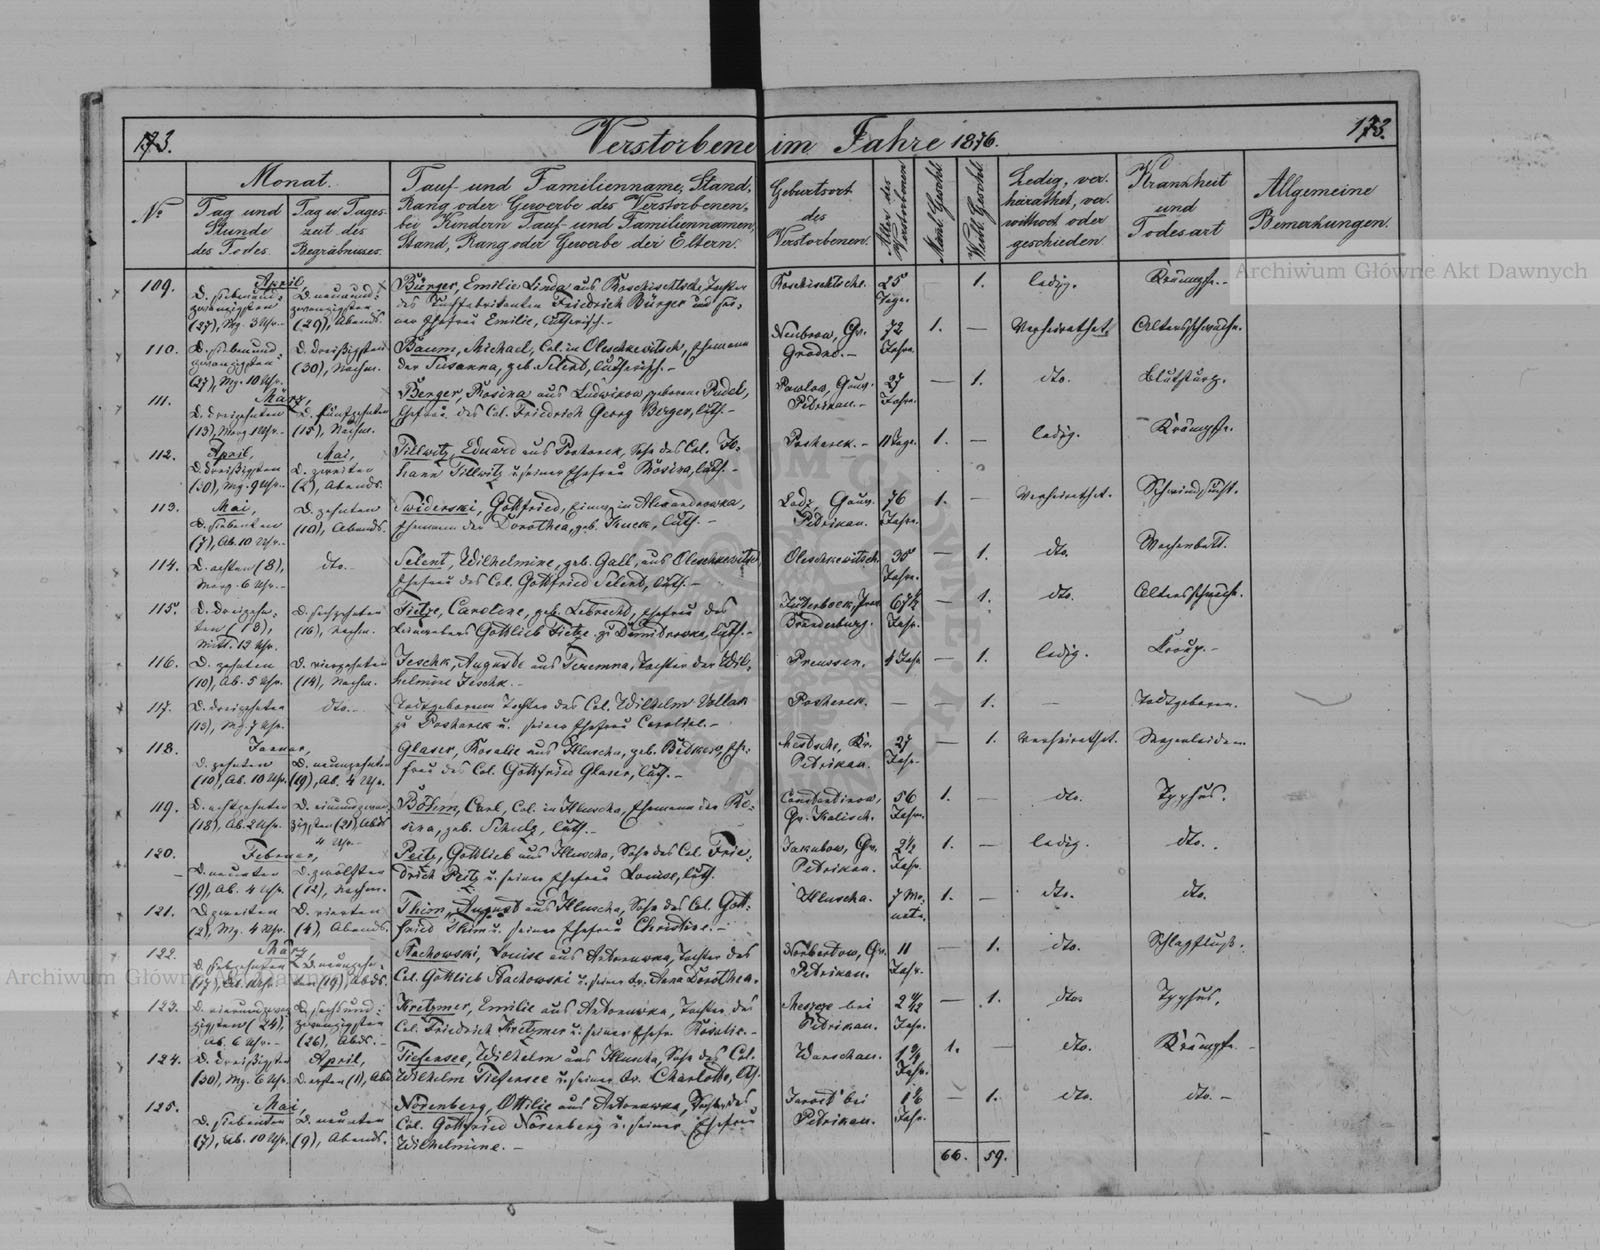 173.
Verstorbene im Jahre 1876.
173.
№
Monat.
Tag und Stunde des Todes.
Tag u. Tages-
zeit des
Begräbnisses.
Tauf- und Familienname, Stand,
Rang oder Gewerbe des Verstorbenen,
bei Kindern Tauf- und Familiennamen,
Stand, Rang oder Gewerbe der Eltern.
Geburtsort
des
Verstorbenen.
Alter des
Verstorbenen
Männl. Geschl.
Weibl. Geschl.
Ledig, ver-
heirathet, ver-
wittwet oder
geschieden.
Krankheit
und
Todesart
Allgemeine
Bemerkungen.
109.
April,
D. siebenund-
zwanzigsten
(27), Mg. 3 Uhr.
D. neunund-
zwanzigsten
(29), Abends.
Bürger, Emilie Linda aus Roschischtsche, Tochter
des Tuchfabrikanten Friedrich Bürger und sei-
ner Ehefrau Emilie, lutherisch.
Roschischtsche.
25
Tage.
1.
ledig.
Krämpfe.
110.
D. siebenund-
zwanzigsten
(27), Mg. 10 Uhr.
D. dreißigsten
(30), Nachm.
Baum, Michael, Col. in Oleschkewitsch, Ehemann
der Susanna, geb. Selent, lutherisch.
Neubrow, Gv.
Grodno.
72
Jahre.
1.
Verheirathet.
Altersschwäche.
111.
März,
D. dreizehnten
(13), Morg. 1 Uhr.
D. fünfzehnten
(15), Nachm.
Berger, Rosina aus Ludwikow, geborene Pudel,
Ehefrau des Col. Friedrich Georg Berger, luth.
Pawlow, Gouv.
Petrikau.
27
Jahre.
1.
dto.
Blutsturz.
112.
April,
D. dreißigsten
(30), Mg. 9 Uhr.
Mai,
D. zweiten
(2), Abends.
Tillwitz, Eduard aus Posharek, Sohn des Col. Jo-
hann Tillwitz u. seiner Ehefrau Rosina, luth.
Posharek.
11 Tage.
1.
ledig.
Krämpfe.
113.
Mai,
D. siebenten
(7), Ab. 10 Uhr.
D. zehnten
(10), Abends.
Swiderski, Gottfried, in Alexandrowka,
Ehemann der Dorothea, geb. luth.
Lodz, Gouv.
Petrikau.
76
Jahre.
1.
Verheirathet.
Schwindsucht.
114.
D. achten (8),
Morg. 6 Uhr.
dto.
Selent, Wilhelmine, geb. Gall, aus Oleschkewitsch
Ehefrau des Col. Gottfried Selent, luth.
Oleschkewitsch
30
Jahre.
1.
dto.
Wochenbett.
115.
D. dreizehn-
ten (13),
Mitt. 12 Uhr.
D. sechzehnten
(16), Nachm.
Tietze, Caroline, geb. Lebrecht, Ehefrau des
Gottlieb Tietze zu Demidowka, luth.
Jüterbock, Prov.
Brandenburg.
67½
Jahr.
1.
dto.
Altersschwäche.
116.
D. zehnten
(10), Ab. 5 Uhr.
D. vierzehnten
(14), Nachm.
Jeschk, Auguste aus Teremna, Tochter der Wil-
helmine Jeschk.
Preussen.
1 Jahr
1.
ledig.
117.
D. dreizehnten
(13), Mg. 7 Uhr.
dto.
Todtgeborene Tochter des Col. Wilhelm Vollak
zu Posharek u. seiner Ehefrau Caroline.
Posharek.
1.
Todtgeboren.
118.
Januar,
D. zehnten
(10), Ab. 10 Uhr.
D. neunzehnten
(19), Ab. 4 Uhr.
Glaser, Rosalie aus Hluscha, geb. Ehe-
frau des Col. Gottfried Glaser, luth.
Petrikau.
27
Jahr.
1.
verheirathet.
Magenleiden.
119.
D. achtzehnten
(18), Ab. 2 Uhr.
D. einundzwan-
zigsten (21), Abds
4 Uhr.
Böhm, Carl, Col. in Hluscha, Ehemann der Ro-
sina, geb. Schulz, luth.
Constantinow,
Gv. Kalisch.
56
Jahre.
1.
dto.
Typhus.
120.
Februar,
D. neunten
(9), Ab. 4 Uhr.
D. zwölften
(12), Nachm.
Peitz, Gottlieb aus Hluscha, Sohn des Col. Frie-
drich Peitz u. seiner Ehefrau Louise, luth.
Jakubow, Gv.
Petrikau.
2½
Jahr.
1.
ledig.
dto.
121.
D. zweiten
(2), Mg. 4 Uhr.
D. vierten
(4), Abends.
Thim, August aus Hluscha, Sohn des Col. Gott-
fried Thim u. seiner Ehefrau Christine.
Hluscha.
7 Mo-
nate.
1.
dto.
dto.
122.
März,
D. siebzehnten
D. neunzehn-
ten (19), Abds.
Stachowski, Louise aus Antonowka, Tochter des
Col. Gottlieb Stachowski u. seiner Fr. Anna Dorothea.
Norbertow, Gv.
Petrikau.
11
Jahr.
1.
dto.
Schlagfluß.
123.
D. vierundzwan-
zigsten (24),
Ab. 6 Uhr.
D. sechsund-
zwanzigsten
(26), Abds.
Kretzmer, Emilie aus Antonowka, Tochter des
Col. Friedrich Kretzmer u. seiner Ehefr. Rosalie.
bei
Petrikau.
Jahr.
1.
dto.
Typhus.
124.
D. dreißigsten
(30), Mg. 6 Uhr.
April,
D. ersten (1), Abd.
Tiefensee, Wilhelm aus Hluscha, Sohn des Col.
Wilhelm Tiefensee u. seiner Fr. Charlotte, luth.
Warschau.
Jahr.
1.
dto.
Krämpfe.
125.
Mai,
D. siebenten
(7), Ab. 10 Uhr.
D. neunten
(9), Abends.
Nörenberg, Ottilie aus Antonowka, Tochter des
Col. Gottfried Nörenberg u. seiner Ehefrau
Wilhelmine.
bei
Petrikau.
Jahr.
1.
dto.
dto.
66.
59.
Archiwum Główne Akt Dawnych
Archiwum Główne Akt Dawnych